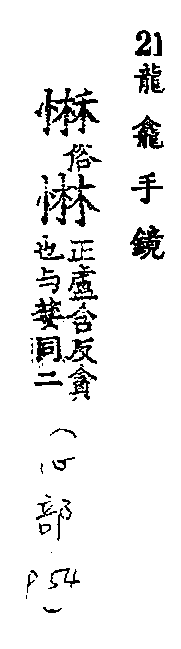 21龍龕手鏡
俗惏
正盧含反貪
也与婪同二
(心部P54)